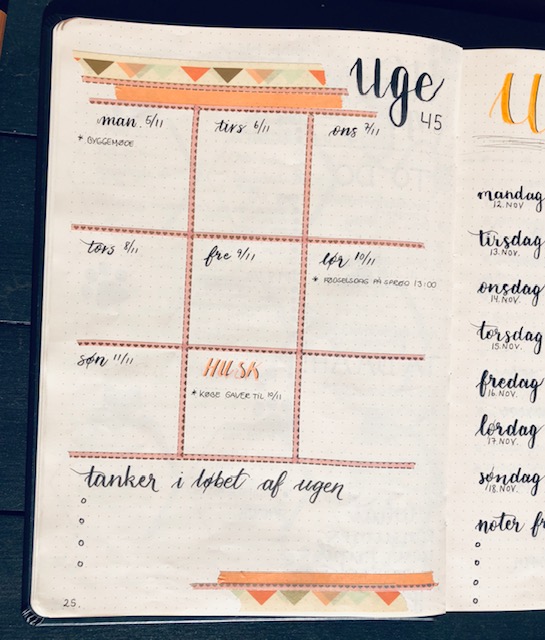 uge
45
man. 5/11
* BYGGEMØDE
tirs 6/11
ons 7/11
tors 8/11
fre 9/11
lør 10/11
* FØDSELSDAG PÅ SPROGØ 13:00
søn 11/11
HUSK
* KØBE GAVER TIL 10/11
tanker i løbet af ugen
25.
mandag
12. NOV
tirsdag
13. NOV.
onsdag
14. NOV.
torsdag
15. NOV.
fredag
16. NOV.
lørdag
17. NOV.
søndag
18. NOV.
noter